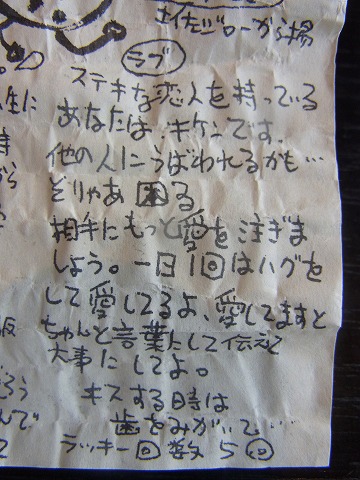 土佐ジローから揚
ラブ
ステキな恋人を持っている
あなたは キケンです。
他の人にうばわれるかも…
そりゃあ 困る
相手にもっと愛を注ぎま
しょう。一日1回はハグを
して愛してるよ、愛してますと
ちゃんと言葉にして伝えて
大事に してよ。
キスする時は
歯をみがいて…
ラッキー回数 5回